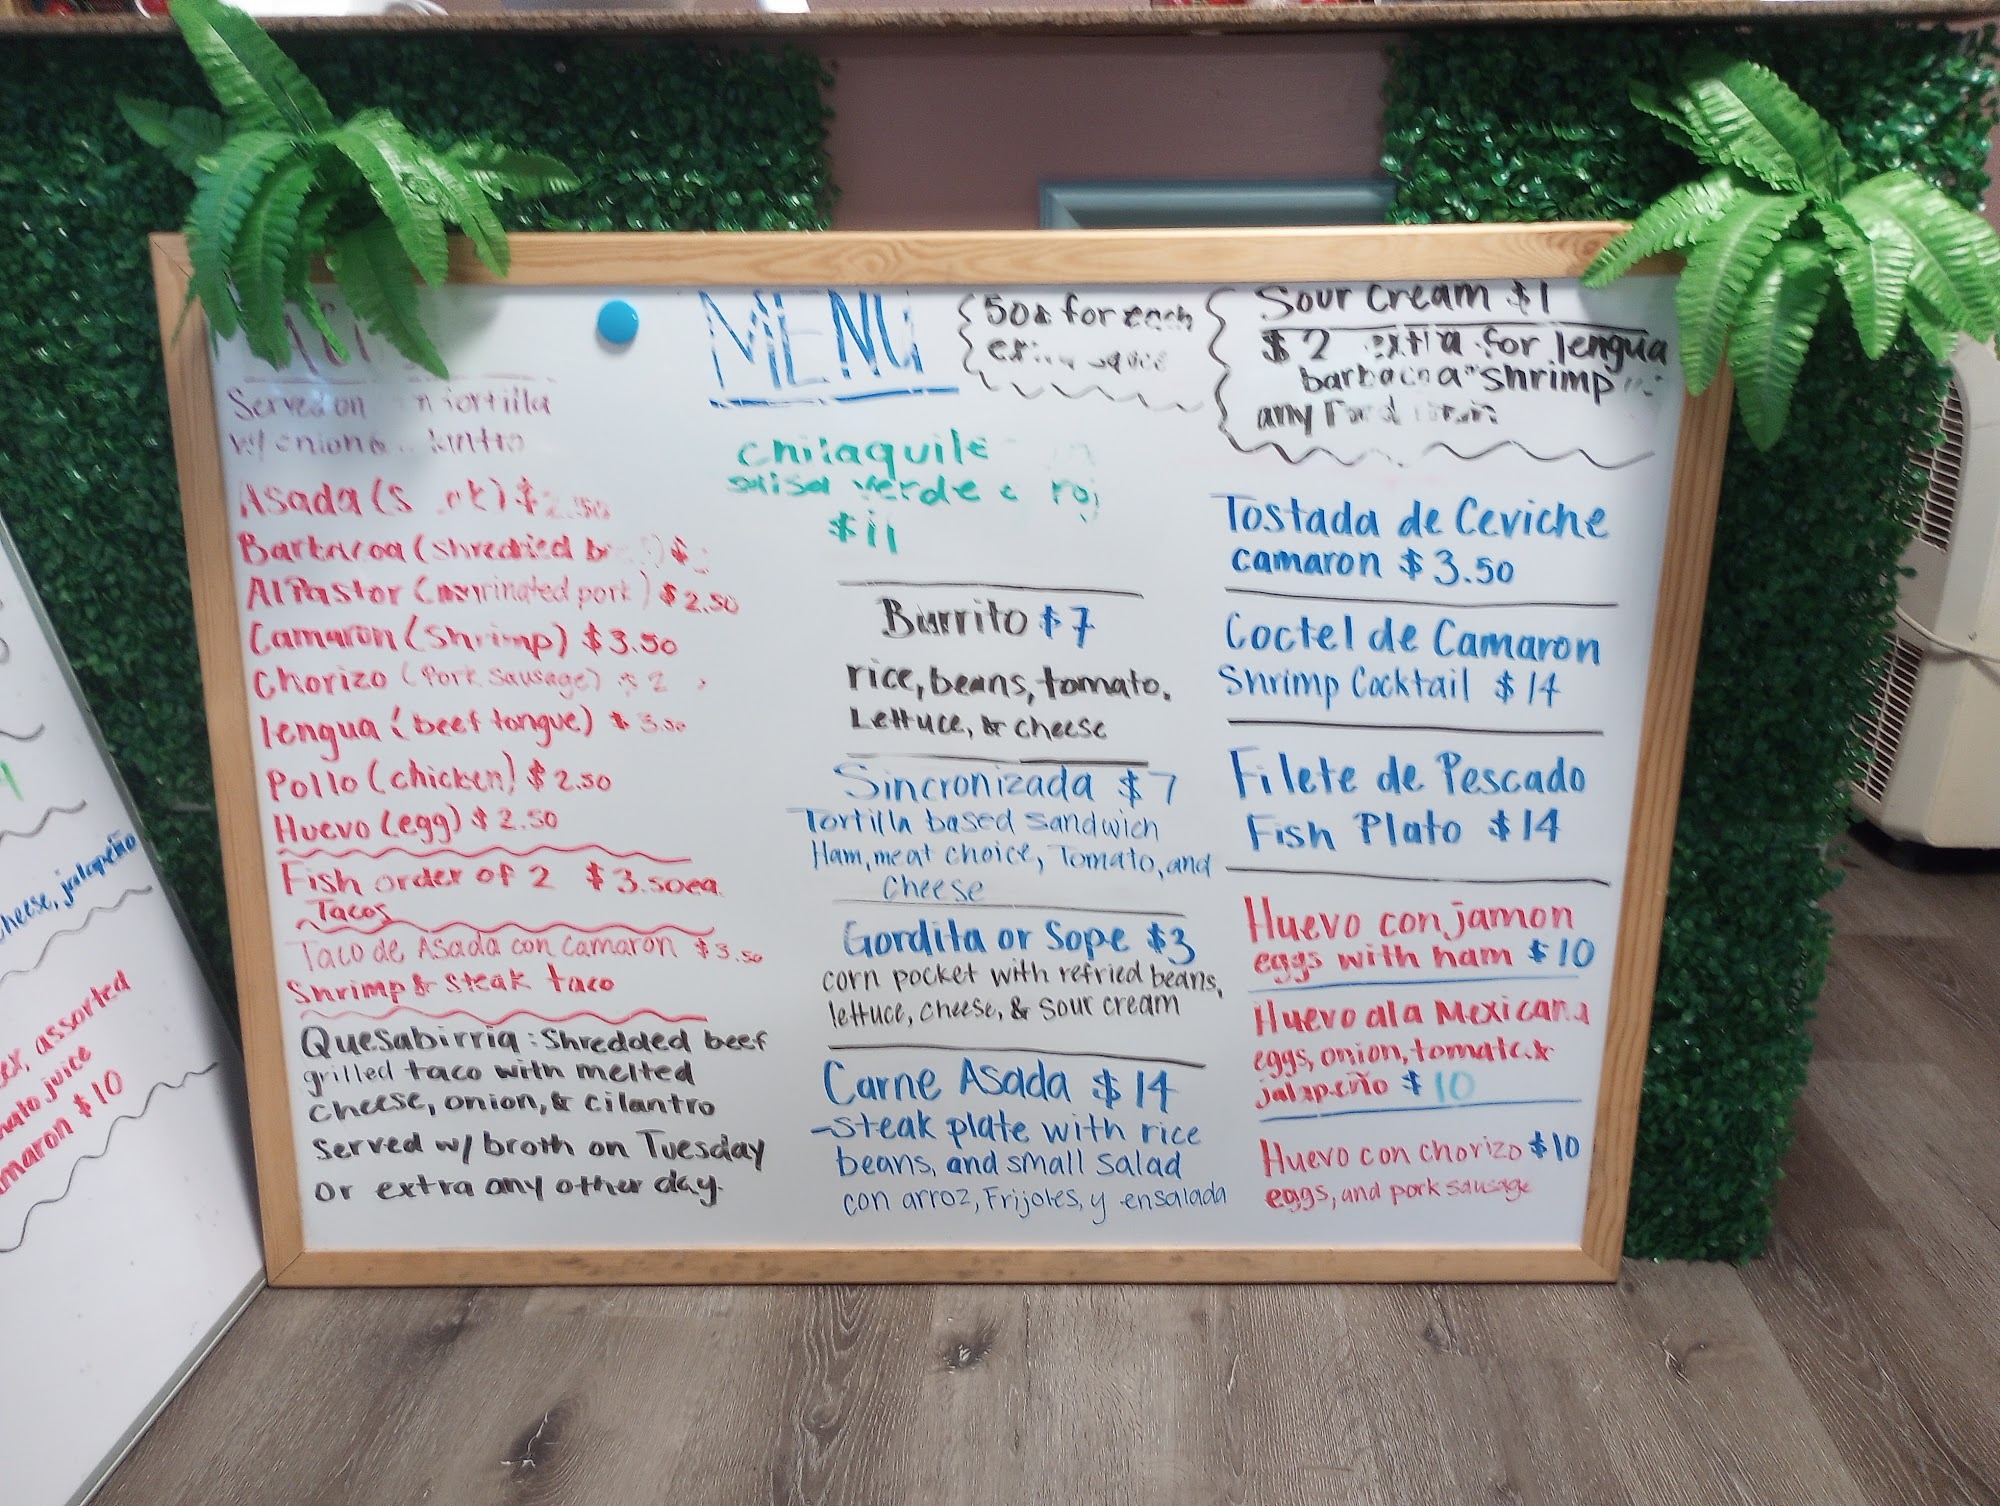 MENU
50¢ for each
Sour Cream $1
$2 extra for lengua
barbacoa shrimp
any
Served on tortilla
w/ onion &
Asada ( $2.50
Barbacoa (shredded
Al Pastor (marinated pork) $2.50
Camaron (shrimp) $3.50
Chorizo (Pork sausage) $2
lengua (beef tongue) $3.50
Pollo (chicken) $2.50
Huevo (egg) $2.50
Fish order of 2 $3.50ea
Tacos
Taco de Asada con camaron $3.50
Shrimp & steak taco
Quesabirria: Shredded beef
grilled taco with melted
cheese, onion, & cilantro
Served w/ broth on Tuesday
or extra any other day.
chilaquile
salsa verde
$11
Burrito $7
rice, beans, tomato,
Lettuce, & cheese
Sincronizada $7
Tortilla based sandwich
Ham, meat choice, Tomato, and
cheese
Gordita or Sope $3
corn pocket with refried beans,
lettuce, cheese, & sour cream
Carne Asada $14
-steak plate with rice
beans, and small salad
con arroz, Frijoles, y ensalada
Tostada de Ceviche
camaron $3.50
Coctel de Camaron
Shrimp Cocktail $14
Filete de Pescado
Fish Plato $14
Huevo con jamon
eggs with ham $10
Huevo ala Mexicana
eggs, onion, tomato &
jalapeño $10
Huevo con chorizo $10
eggs, and pork sausage
cheese, jalapeño
assorted
juice
$10